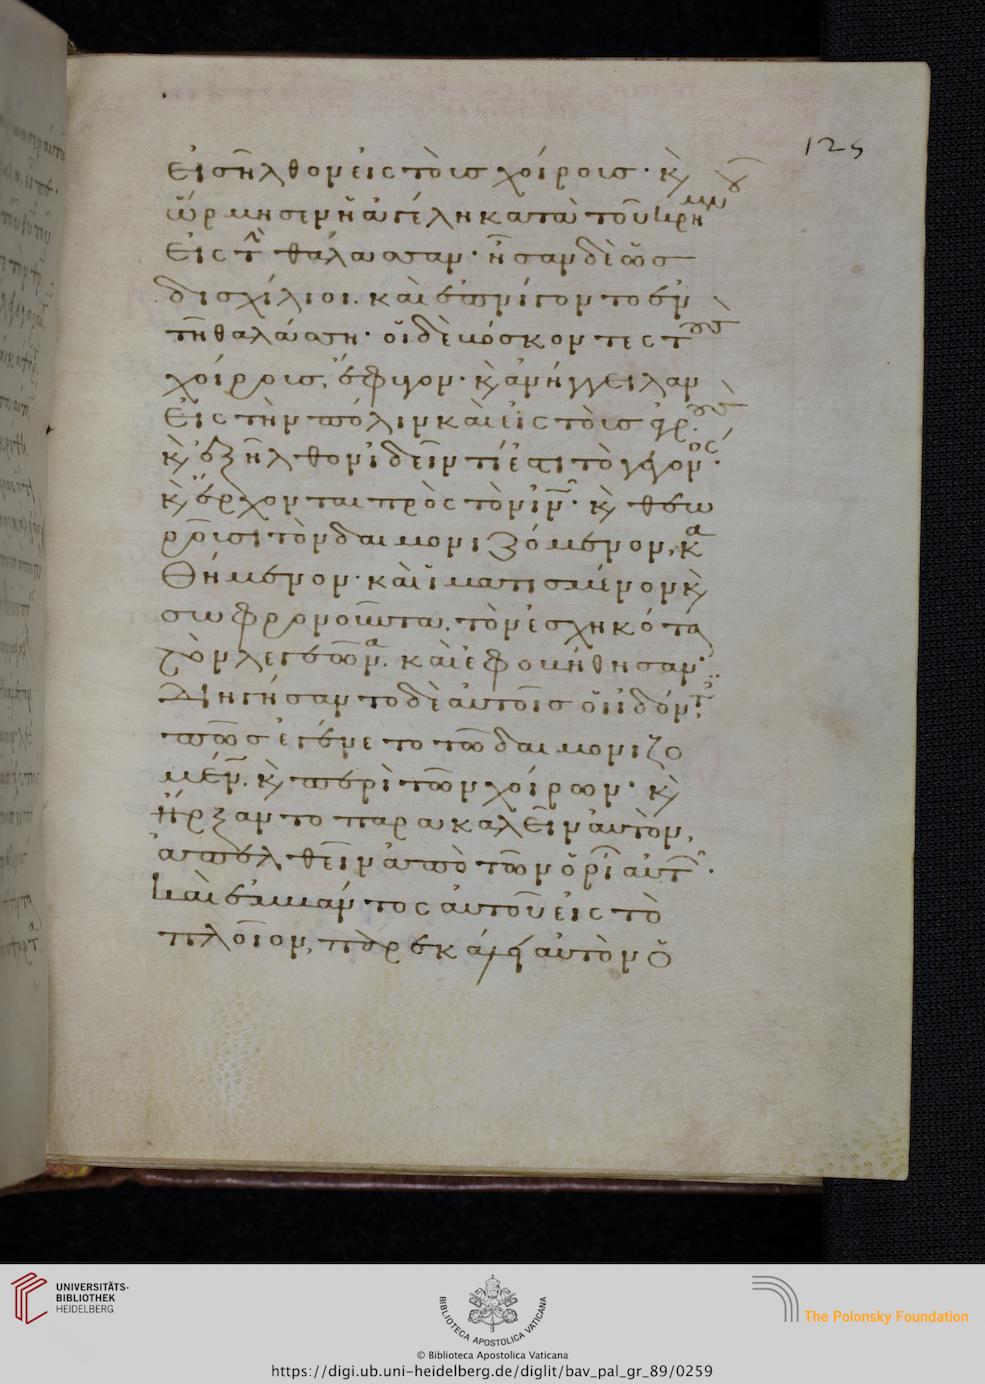 125
εἰσῆλθον εἰς τοὺς χοίρους · κ(αὶ)
ὥρμησεν ἡ ἀγέλη κατὰ τοῦ κρημνοῦ
εἰς τ(ὴν) θάλασσαν · ἦσαν δὲ ὡς
δισχίλιοι · καὶ ἐπνίγοντο ἐν
τῇ θαλάσσῃ · οἱ δὲ βόσκοντες τοὺς
χοίρους, ἔφυγον · κ(αὶ) ἀνήγγειλαν
εἰς τὴν πόλιν καὶ εἰς τοὺς ἀγρούς ·
κ(αὶ) ἐξῆλθον ἰδεῖν τί ἐστι τὸ γεγονός ·
κ(αὶ) ἔρχονται πρὸς τὸν ἰν · κ(αὶ) θεω
ροῦσι τὸν δαιμονιζόμενον, κα
θήμενον · καὶ ἱματισμένον κ(αὶ)
σωφρονοῦντα, τὸν ἐσχηκότα
τὸν λεγεῶνα · καὶ ἐφοβήθησαν ·
Διηγήσαντο δὲ αὐτοῖς οἱ ἰδόντες
πῶς ἐγένετο τῶ δαιμονιζο
μέν(ω) · κ(αὶ) περὶ τῶν χοίρων · κ(αὶ)
ἤρξαντο παρακαλεῖν αὐτὸν,
ἀπελθεῖν ἀπὸ τῶν ὁρί(ων) αὐτ(ῶν) ·
Καὶ ἐμβάντος αὐτοῦ εἰς τὸ
πλοῖον, παρεκάλει αὐτὸν ὁ
UNIVERSITÄTS-
BIBLIOTHEK
HEIDELBERG
BIBLIOTECA APOSTOLICA VATICANA
The Polonsky Foundation
© Biblioteca Apostolica Vaticana
https://digi.ub.uni-heidelberg.de/diglit/bav_pal_gr_89/0259